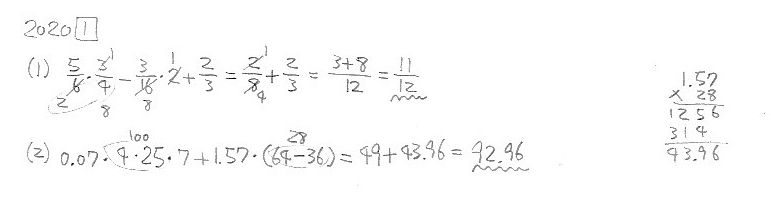 2020 1
(1) 5/6・3/4 - 3/16・2 + 2/3 = 2/8 + 2/3 = (3+8)/12 = 11/12
(2) 0.07・4・25・7+1.57・(64-36) = 49+43.96 = 92.96
1.57
× 28
1256
314
43.96